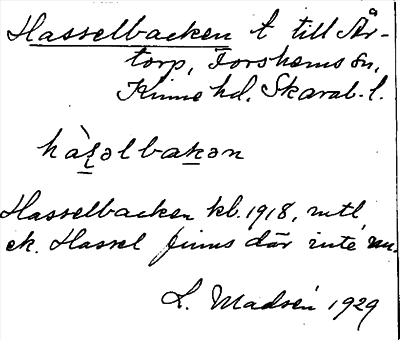 Hasselbacken t till År-
torp, Forshems sn,
Kinne hd. Skarab. l.
hàs̱əlbaḵən
Hasselbacken kl. 1918, mtl,
ek. Hassel finns där inte nu.
L. Madsén 1929